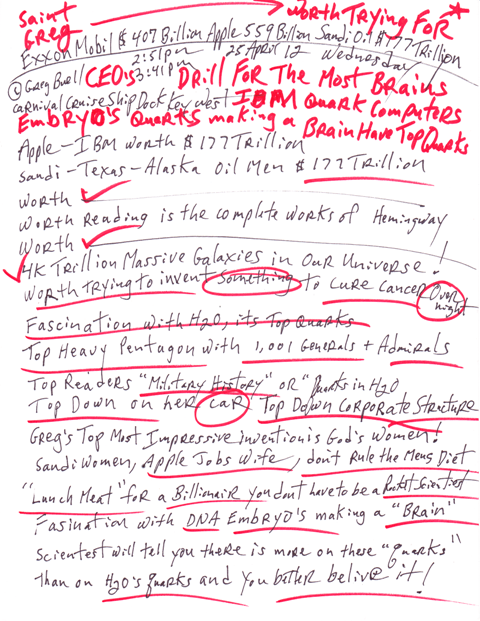 Saint Greg → Worth Trying For *
Exxon Mobil $ 407 Billion Apple 559 Billion Saudi Oil $177 Trillion
2:51pm 25 April 12 Wednesday
© Greg Buell CEO's 3:41pm Drill For The Most Brains
Carnival Cruise Ship Dock Key West IBM Quark Computers
Embryo's Quarks making a Brain Have Top Quarks
Apple-IBM worth $177 Trillion
Saudi-Texas-Alaska Oil Men $177 Trillion
Worth ✓
Worth Reading is the complete works of Hemingway
Worth ✓
4K Trillion Massive Galaxies in Our Universe!
Worth Trying to invent something to cure cancer overnight
Fascination with H2O, its Top Quarks
Top Heavy Pentagon with 1,001 Generals + Admirals
Top Readers "Military History" or "Quarks in H2O
Top Down on her car Top Down Corporate Structure
Greg's Top Most Impressive invention is God's Women!
Saudi Women, Apple Jobs Wife, don't Rule the Mens Diet
"Lunch Meat" for a Billionair you don't have to be a Rocket Scientist
Fasination with DNA Embryo's making a "Brain"
Scientest will tell you there is more on these "quarks"
Than on H2O's quarks and you better belive it!